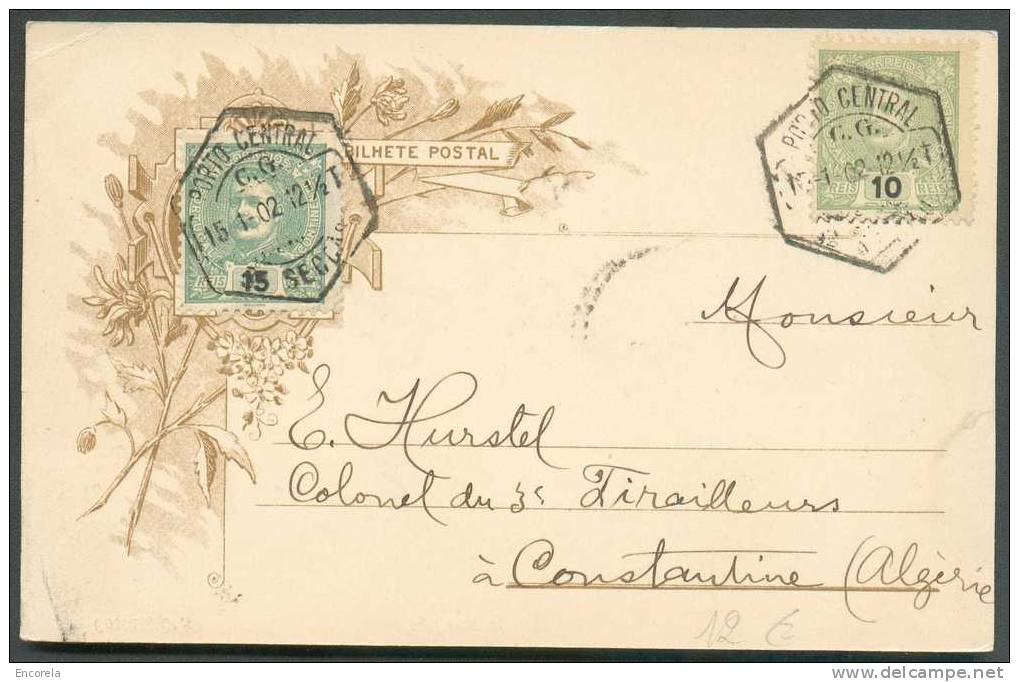 CORREIOS
PORTO CENTRAL
C. G.
15-1-02 12½T
SECÇÃO
BILHETE POSTAL
REIS 15
PORTO CENTRAL
C. G.
-1-02 12½T
REIS 10 REIS
Monsieur
E. Hurstel
Colonel du 3e Tirailleurs
à Constantine (Algérie
12 €
Encorela
www.delcampe.net